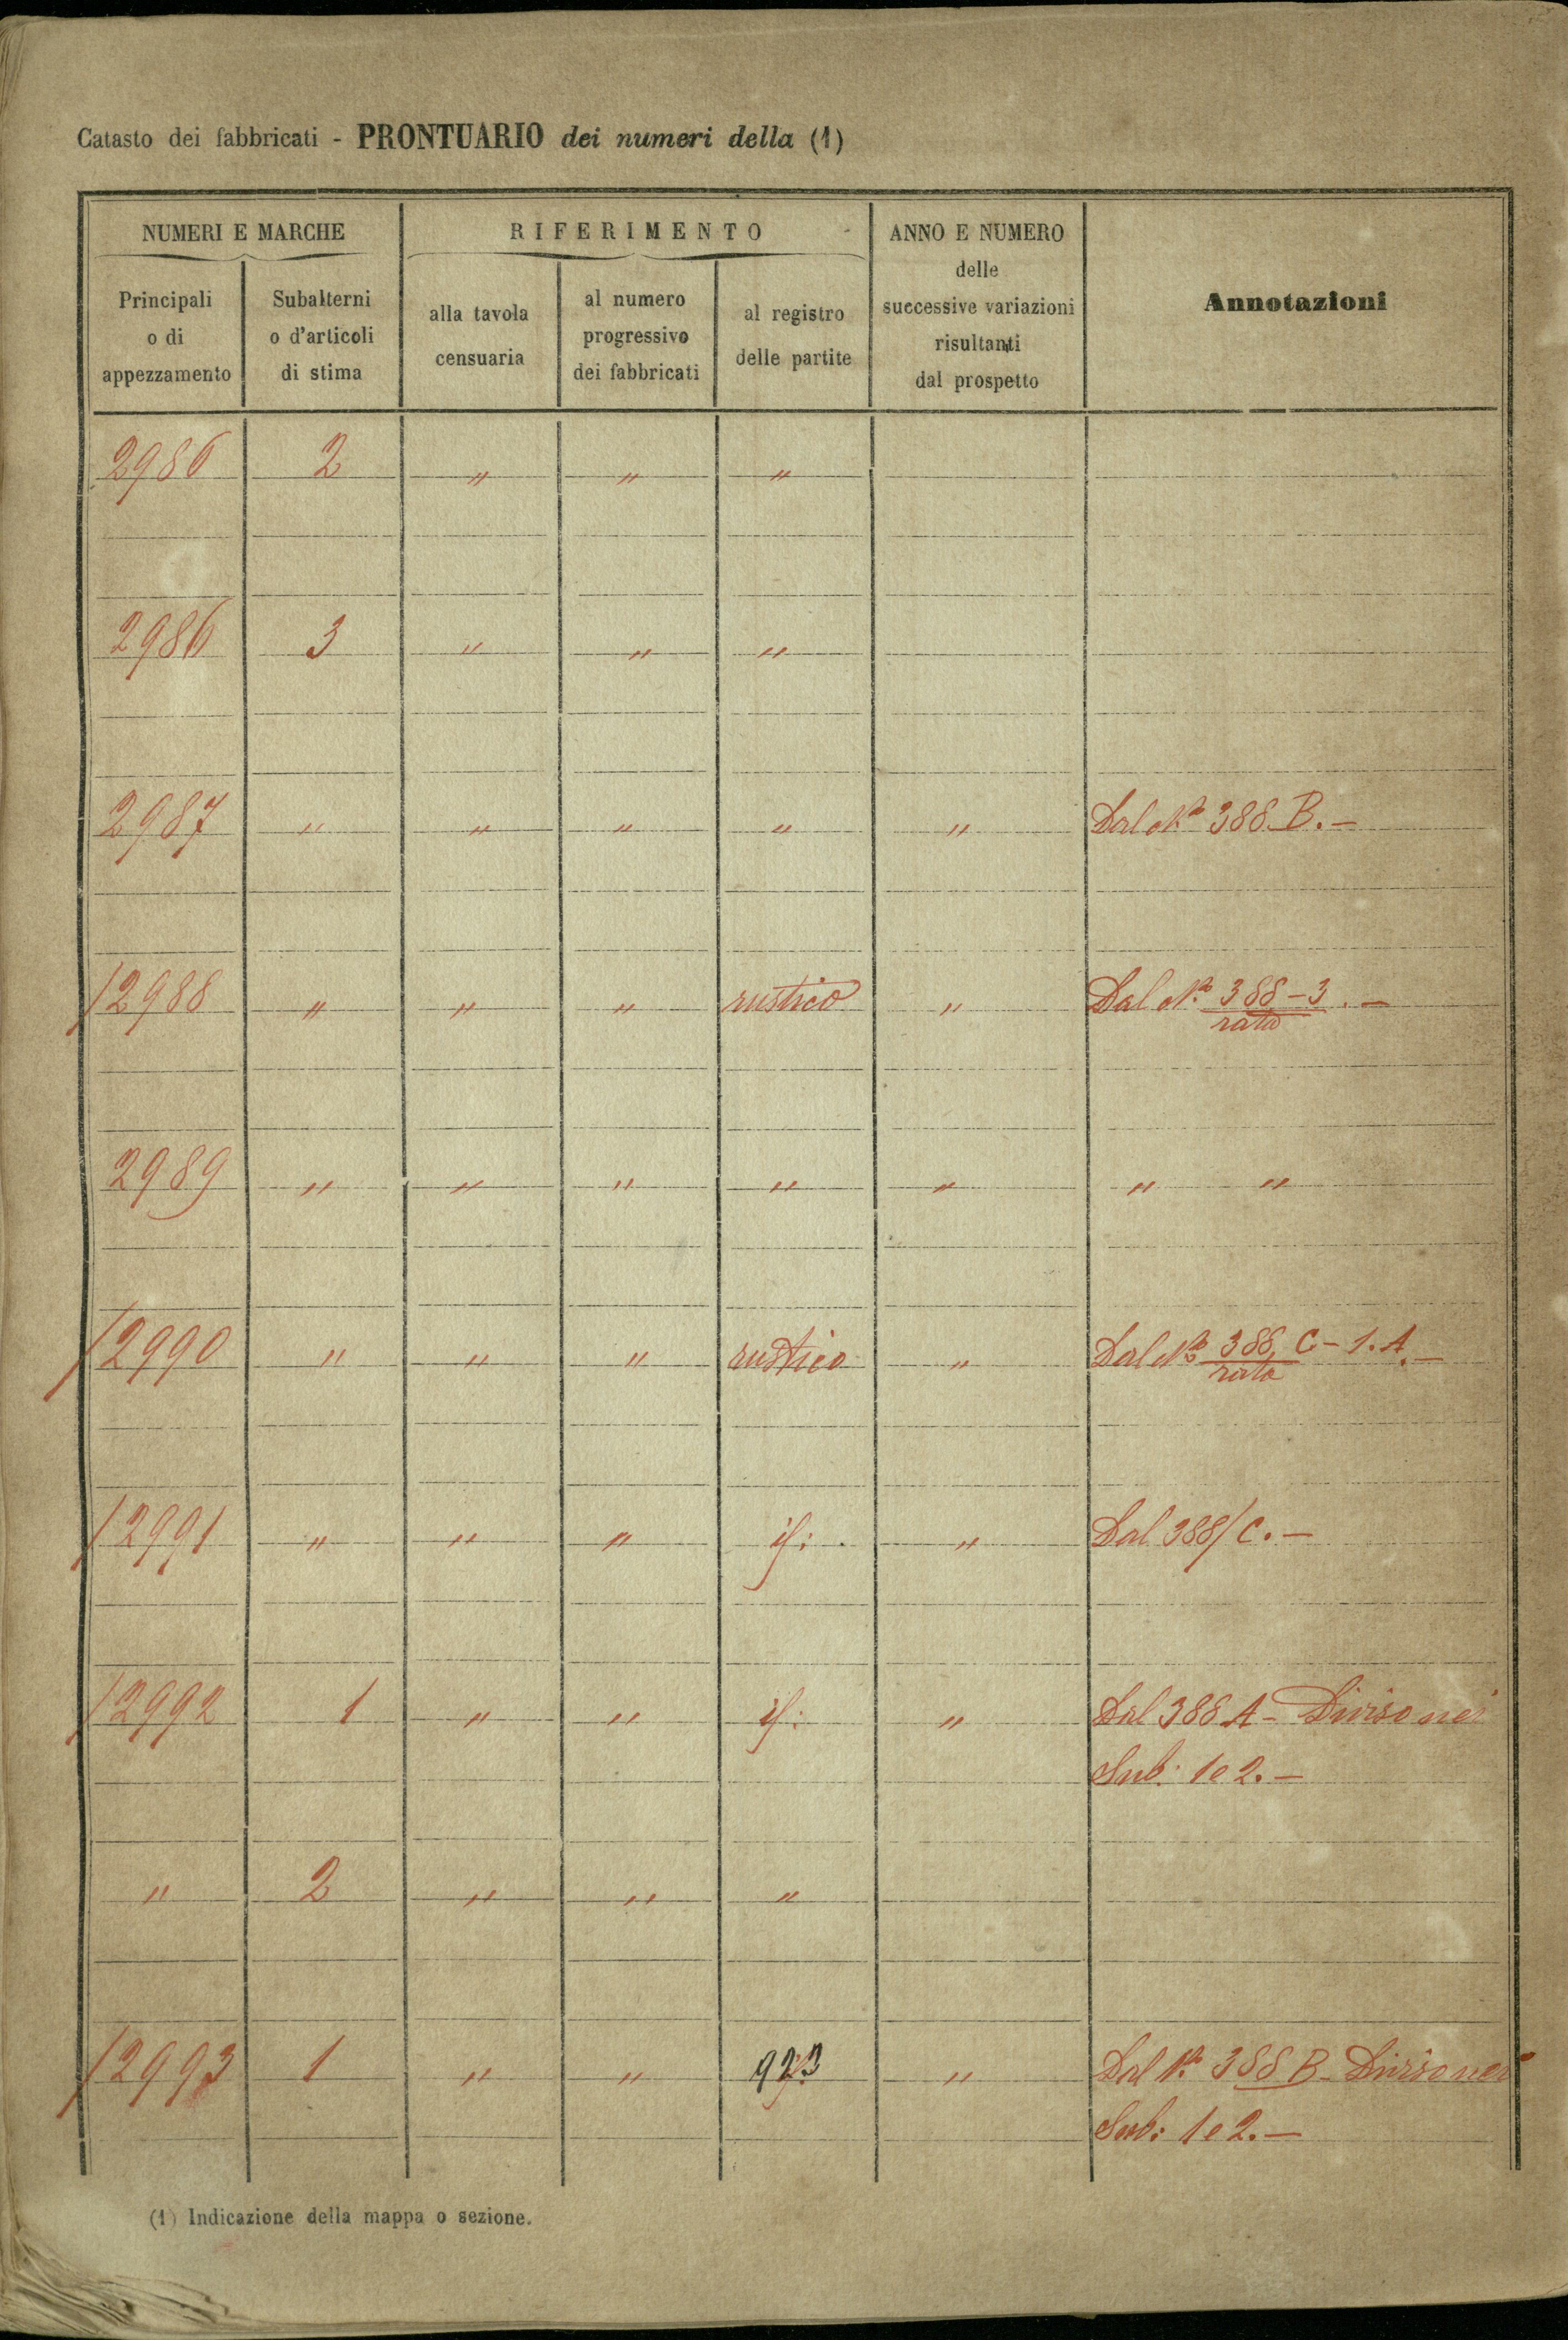 Catasto dei fabbricati - PRONTUARIO dei numeri della (1)
NUMERI E MARCHE
RIFERIMENTO
ANNO E NUMERO
delle
successive variazioni
risultanti
dal prospetto
Annotazioni
Principali
o di
appezzamento
Subalterni
o d'articoli
di stima
alla tavola
censuaria
al numero
progressivo
dei fabbricati
al registro
delle partite
2986 2 " " "
2986 3 " " "
2987 " " " " " Dal No 388 B. —
/2988 " " " rustico " Dal No 388 - 3 . —
rata
2989 " " " " " " "
/2990 " " " rustico " Dal No 388 C - 1. A. —
rata
/2991 " " " " Dal 388/C. —
/2992 1 " " " Dal 388 A - Diviso nei
Sub: 1 e 2. —
" 2 " " "
/2993 1 " " 923 " Dal No 388 B - Diviso nei
Sub: 1 e 2. —
(1) Indicazione della mappa o sezione.